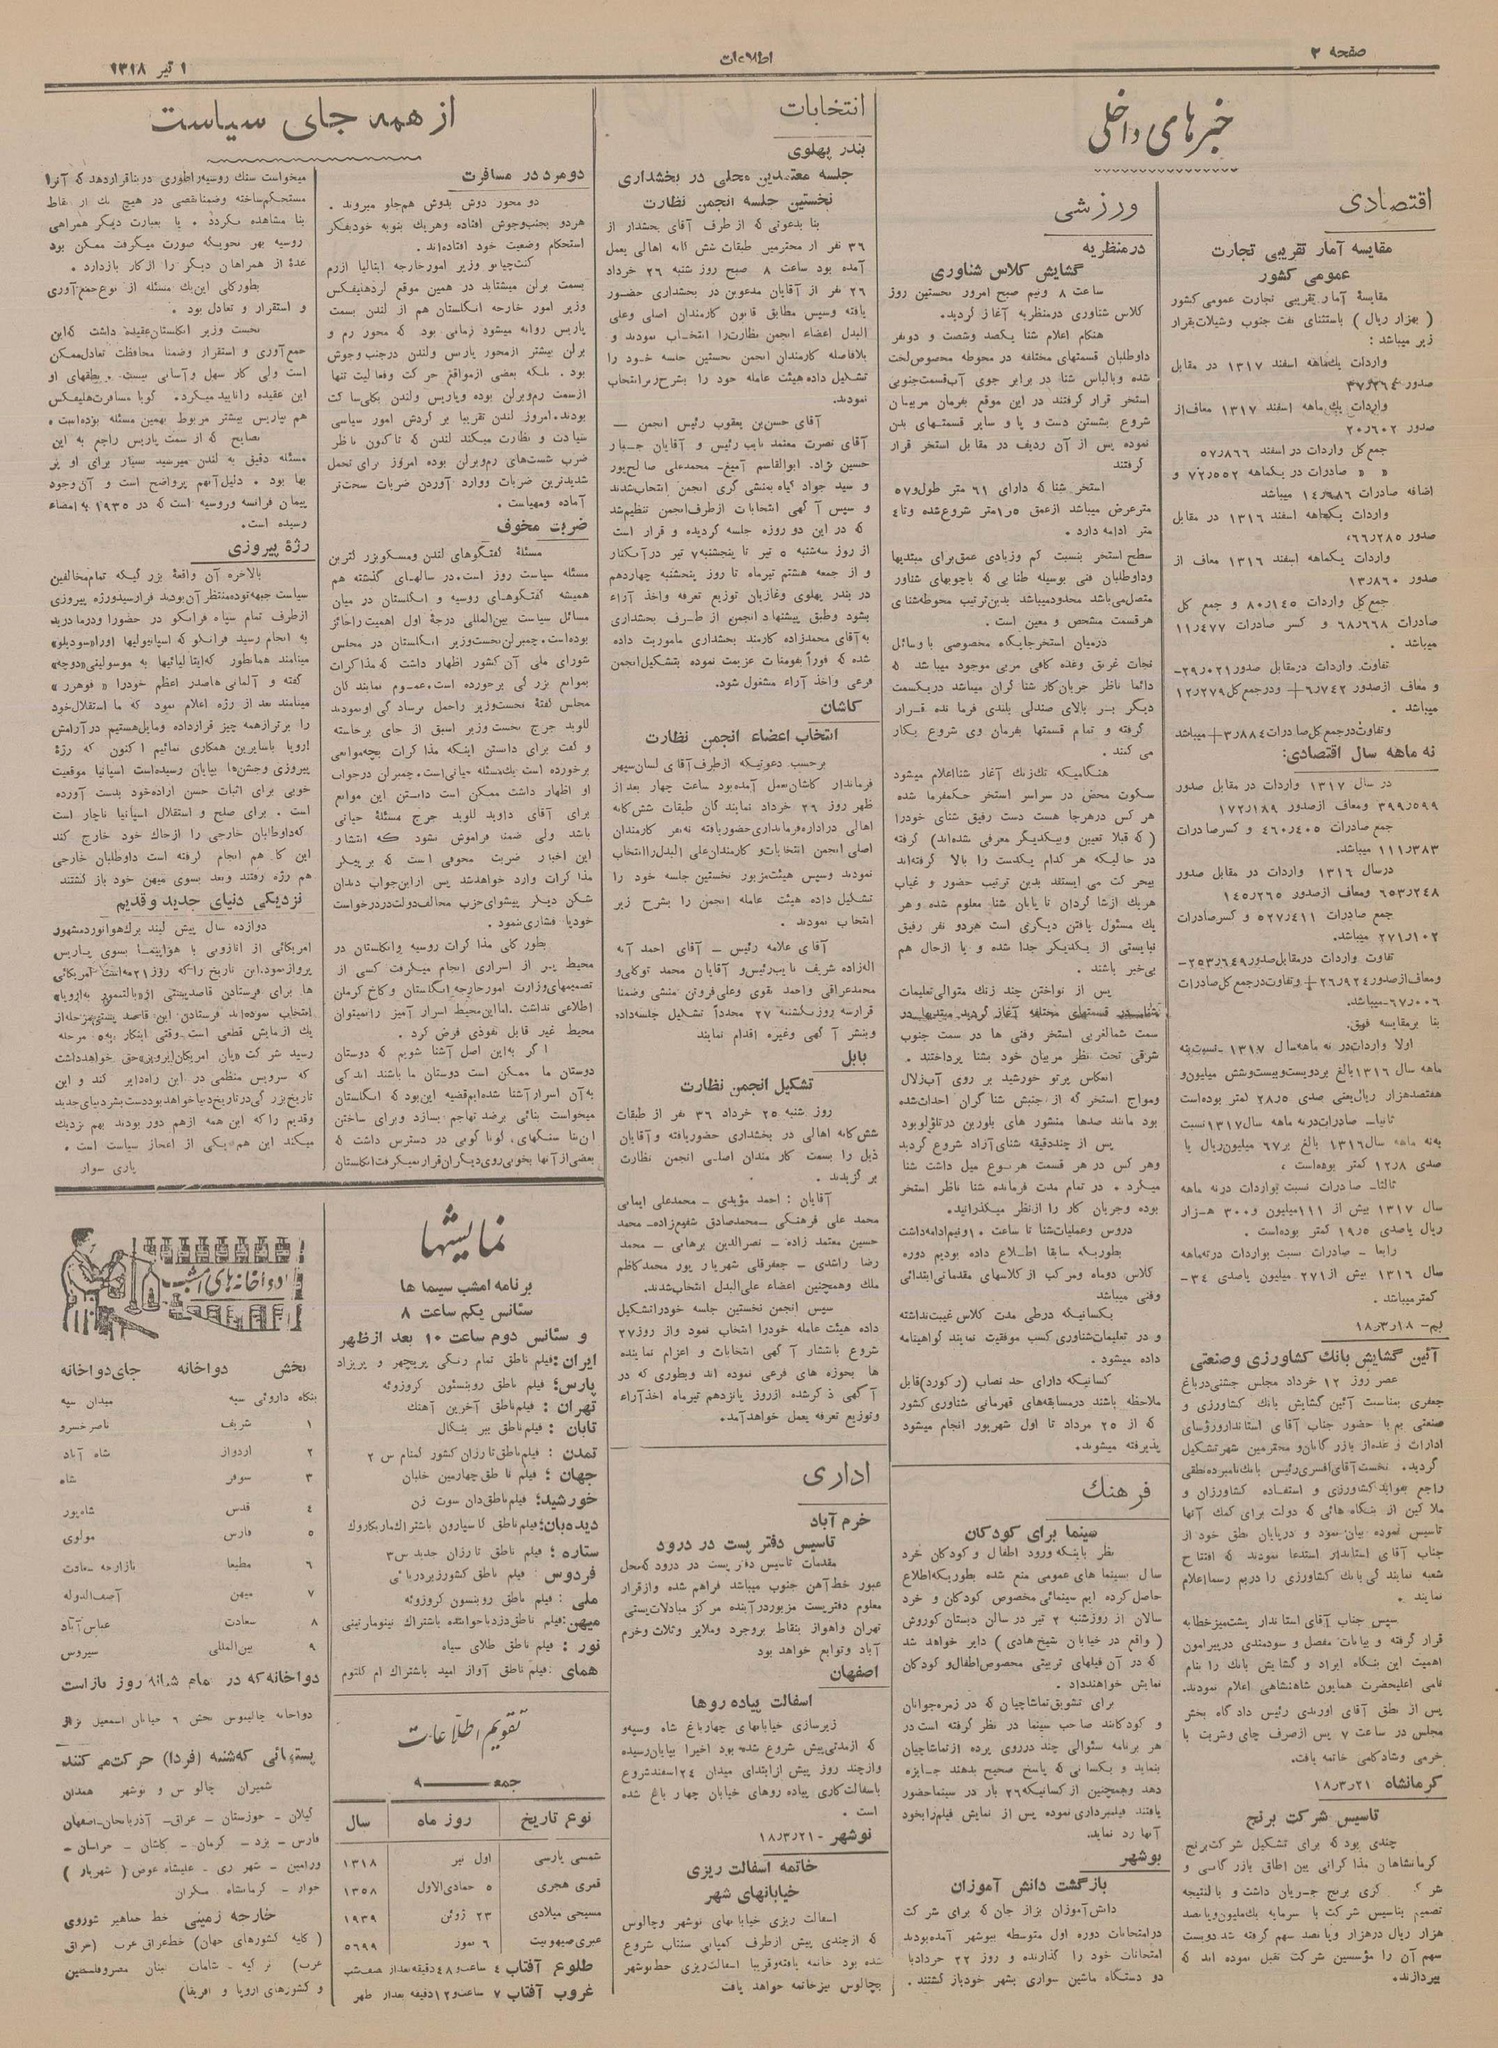 صفحه ۲
اطلاعات
۱ تیر ۱۳۱۸
خبرهای داخلی
اقتصادی
مقایسه آمار تقریبی تجارت
عمومی کشور
مقایسهٔ آمار تقریبی تجارت عمومی کشور
( بهزار ریال ) باستثنای نفت جنوب و شیلات بقرار
زیر میباشد :
واردات یکماهه اسفند ۱۳۱۷ در مقابل
صدور ۳۷٫۲۶۴
واردات یک ماهه اسفند ۱۳۱۷ معاف از
صدور ۲۰٫۶۰۲
جمع کل واردات در اسفند ۵۷٫۸۶۶
« « صادرات در یکماهه ۷۲٫۵۵۲ و
اضافه صادرات ۱۴٫۶۸۶ میباشد
واردات یکماهه اسفند ۱۳۱۶ در مقابل
صدور ۶۶٫۲۸۵
واردات یکماهه اسفند ۱۳۱۶ معاف از
صدور ۱۳٫۸۶۰
جمع کل واردات ۸۰٫۱۴۵ و جمع کل
صادرات ۶۸٫۶۶۸ و کسر صادرات ۱۱٫۴۷۷
میباشد .
تفاوت واردات در مقابل صدور ۲۹٫۰۲۱-
و معاف از صدور ۶٫۷۴۲+ و در جمع کل ۱۲٫۲۷۹
میباشد .
و تفاوت در جمع کل صادرات ۳٫۸۸۴+ میباشد
نه ماهه سال اقتصادی:
در سال ۱۳۱۷ واردات در مقابل صدور
۳۹۹٫۵۹۹ و معاف از صدور ۱۷۲٫۱۸۹
جمع صادرات ۴۶۰٫۴۰۵ و کسر صادرات
۱۱۱٫۳۸۳ میباشد.
در سال ۱۳۱۶ واردات در مقابل صدور
۶۵۳٫۲۴۸ و معاف از صدور ۱۴۵٫۲۶۵
جمع صادرات ۵۲۷٫۴۱۱ و کسر صادرات
۲۷۱٫۱۰۲ میباشد.
تفاوت واردات در مقابل صدور ۲۵۳٫۶۴۹-
و معاف از صدور ۲۶٫۹۲۴+ و تفاوت در جمع کل صادرات
۶۷٫۰۰۶- میباشد.
بنا بر مقایسه فوق:
اولا واردات در نه ماهه سال ۱۳۱۷ نسبت به نه
ماهه سال ۱۳۱۶ بالغ بر دویست و بیست و شش میلیون و
هفتصد هزار ریال یعنی صدی ۲۸٫۵ کمتر بوده است
ثانیا- صادرات در نه ماهه سال ۱۳۱۷ نسبت
به نه ماهه سال ۱۳۱۶ بالغ بر ۶۷ میلیون ریال یا
صدی ۱۲٫۸ کمتر بوده است ،
ثالثا- صادرات نسبت بواردات در نه ماهه
سال ۱۳۱۷ بیش از ۱۱۱ میلیون و ۳۰۰ هزار
ریال یا صدی ۱۹٫۵ کمتر بوده است .
رابعا - صادرات نسبت بواردات در نه ماهه
سال ۱۳۱۶ بیش از ۲۷۱ میلیون یا صدی ۳۴-
کمتر میباشد .
بم- ۱۸٫۳٫۱۸
آئین گشایش بانک کشاورزی و صنعتی
عصر روز ۱۲ خرداد مجلس جشنی در باغ
جعفری بمناسبت آئین گشایش بانک کشاورزی و
صنعتی بم با حضور جناب آقای استاندار و رؤسای
ادارات و عده از بازرگانان و محترمین شهر تشکیل
گردید. نخست آقای افسری رئیس بانک نامبرده نطقی
راجع بفواید کشاورزی و استفاده کشاورزان و
ملاکین از بنگاه هائی که دولت برای کمک آنها
تاسیس نموده بیان نمود و در پایان نطق خود از
جناب آقای استاندار استدعا نمودند که افتتاح
شعبه نمایندگی بانک کشاورزی را در بم رسما اعلام
نمایند .
سپس جناب آقای استاندار پشت میز خطابه
قرار گرفته و بیانات مفصل و سودمندی در پیرامون
اهمیت این بنگاه ایراد و گشایش بانک را بنام
نامی اعلیحضرت همایون شاهنشاهی اعلام نمودند.
پس از نطق آقای اورندی رئیس دادگاه بخش
مجلس در ساعت ۷ پس از صرف چای و شربت با
خرمی و شادکامی خاتمه یافت.
کرمانشاه ۱۸٫۳٫۲۱
تاسیس شرکت برنج
چندی بود که برای تشکیل شرکت برنج
کرمانشاهان مذاکراتی بین اطاق بازرگانی و
کاری برنج جریان داشت و بالنتیجه
تصمیم بتاسیس شرکت با سرمایه یک ملیون و پانصد
هزار ریال در هزار و پانصد سهم گرفته شد دویست
سهم آن را مؤسسین شرکت تقبل نموده اند که
بپردازند.
ورزشی
در منظریه
گشایش کلاس شناوری
ساعت ۸ و نیم صبح امروز نخستین روز
کلاس شناوری در منظریه آغاز گردید.
هنگام اعلام شنا یکصد و شصت و دو نفر
داوطلبان قسمتهای مختلفه در محوطه مخصوص لخت
شده و با لباس شنا در برابر جوی آب قسمت جنوبی
استخر قرار گرفتند در این موقع بفرمان مربیان
شروع بشستن دست و پا و سایر قسمتهای بدن
نموده پس از آن ردیف در مقابل استخر قرار
گرفتند
استخر شنا که دارای ۶۱ متر طول و ۵۷
متر عرض میباشد از عمق ۱٫۵ متر شروع شده و تا ۴
متر ادامه دارد .
سطح استخر بنسبت کم و زیادی عمق برای مبتدیها
و داوطلبان فنی بوسیله طنابی که با چوبهای شناور
متصل میباشد محدود میباشد بدین ترتیب محوطه شنای
هر قسمت مشخص و معین است .
در میان استخر جایگاه مخصوصی با وسائل
نجات غریق و عده کافی مربی موجود میباشد که
دائما ناظر جریان کار شناگران میباشد در یکسمت
دیگر بر بالای صندلی بلندی فرمانده قرار
گرفته و تمام قسمتها بفرمان وی شروع بکار
می کنند .
هنگامیکه تک زنگ آغاز شنا اعلام میشود
سکوت محض در سراسر استخر حکمفرما شده
هر کس در هر جا هست دست رفیق شنای خود را
( که قبلا تعیین و بیکدیگر معرفی شده اند ) گرفته
در حالیکه هر کدام یکدست را بالا گرفته اند
بیحرکت می ایستند بدین ترتیب حضور و غیاب
هر یک از شاگردان تا پایان شنا معلوم شده و هر
یک مسئول یافتن دیگری است هر دو نفر رفیق
نبایستی از یکدیگر جدا شده و یا از حال هم
بی خبر باشند .
پس از نواختن چند زنگ متوالی تعلیمات
شنا در قسمتهای مختلفه آغاز گردید مبتدیها در
سمت شمالغربی استخر و فنی ها در سمت جنوب
شرقی تحت نظر مربیان خود بشنا پرداختند .
انعکاس پرتو خورشید بر روی آب زلال
و مواج استخر که از جنبش شناگران احداث شده
بود مانند صدها منشور های بلورین در تلؤلؤ بود
پس از چند دقیقه شنای آزاد شروع گردید
و هر کس در هر قسمت هر نوع میل داشت شنا
میکرد . در تمام مدت فرمانده شنا ناظر استخر
بوده و جریان کار را از نظر میگذرانید.
دروس و عملیات شنا تا ساعت ۱۰ و نیم ادامه داشت
بطوریکه سابقا اطلاع داده بودیم دوره
کلاس دو ماه و مرکب از کلاسهای مقدماتی ابتدائی
و فنی میباشد
بکسانیکه در طی مدت کلاس غیبت نداشته
و در تعلیمات شناوری کسب موفقیت نمایند گواهینامه
داده میشود .
کسانیکه دارای حد نصاب ( رکورد ) قابل
ملاحظه باشند در مسابقه های قهرمانی شناوری کشور
که از ۲۵ مرداد تا اول شهریور انجام میشود
پذیرفته میشوند.
فرهنگ
سینما برای کودکان
نظر باینکه ورود اطفال و کودکان خرد
سال بسینما های عمومی منع شده بطوریکه اطلاع
حاصل کرده ایم سینمائی مخصوص کودکان و خرد
سالان از روز شنبه ۲ تیر در سالن دبستان کوروش
( واقع در خیابان شیخ هادی ) دایر خواهد شد
که در آن فیلمهای تربیتی مخصوص اطفال و کودکان
نمایش خواهند داد .
برای تشویق تماشاچیان که در زمره جوانان
و کودکانند صاحب سینما در نظر گرفته است در
هر برنامه سئوالی چند در روی پرده از تماشاچیان
بنماید و بکسانی که پاسخ صحیح بدهند جایزه
دهد و همچنین از کسانیکه ۲۶ بار در سینما حضور
یافتند فیلمبرداری نموده پس از نمایش فیلم را بخود
آنها رد نماید.
بوشهر
بازگشت دانش آموزان
دانش آموزان برازجان که برای شرکت
در امتحانات دوره اول متوسطه ببوشهر آمده بودند
امتحانات خود را گذارنده و روز ۲۲ خرداد با
دو دستگاه ماشین سواری بشهر خود باز گشتند .
انتخابات
بندر پهلوی
جلسه معتمدین محلی در بخشداری
نخستین جلسه انجمن نظارت
بنا بدعوتی که از طرف آقای بخشدار از
۳۶ نفر از محترمین طبقات شش گانه اهالی بعمل
آمده بود ساعت ۸ صبح روز شنبه ۲۶ خرداد
۲۶ نفر از آقایان مدعوین در بخشداری حضور
یافته و سپس مطابق قانون کارمندان اصلی و علی
البدل اعضاء انجمن نظارت را انتخاب نمودند و
بلافاصله کارمندان انجمن نخستین جلسه خود را
تشکیل داده هیئت عامله خود را بشرح زیر انتخاب
نمودند.
آقای حسن بن یعقوب رئیس انجمن —
آقای نصرت معتمد نایب رئیس و آقایان جبار
حسین نژاد. ابوالقاسم آمیغ- محمد علی صالح پور
و سید جواد گیاه بمنشی گری انجمن انتخاب شدند
و سپس آگهی انتخابات از طرف انجمن تنظیم شد
که در این دو روزه جلسه گردیده و قرار است
از روز سه شنبه ۵ تیر تا پنجشنبه ۷ تیر در آمکنار
و از جمعه هشتم تیر ماه تا روز پنجشنبه چهاردهم
در بندر پهلوی و غازیان توزیع تعرفه و اخذ آراء
بشود و طبق پیشنهاد انجمن از طرف بخشداری
به آقای محمد زاده کارمند بخشداری ماموریت داده
شده که فوراً بفومنات عزیمت نموده بتشکیل انجمن
فرعی و اخذ آراء مشغول شود.
کاشان
انتخاب اعضاء انجمن نظارت
برحسب دعوتیکه از طرف آقای لسان سپهر
فرماندار کاشان بعمل آمده بود ساعت چهار بعد از
ظهر روز ۲۶ خرداد نمایندگان طبقات ششگانه
اهالی در اداره فرمانداری حضور یافته نه نفر کارمندان
اصلی انجمن انتخابات و کارمندان علی البدل را انتخاب
نمودند و سپس هیئت مزبور نخستین جلسه خود را
تشکیل داده هیئت عامله انجمن را بشرح زیر
انتخاب نمودند .
آقای علامه رئیس - آقای احمد آیه
اله زاده شریف نایب رئیس و آقایان محمد توکلی و
محمد عراقی و احمد نقوی و علی فروتن منشی و ضمنا
قرار سه روز یکشنبه ۲۷ مجدداً تشکیل جلسه داده
و بنشر آگهی و غیره اقدام نمایند
بابل
تشکیل انجمن نظارت
روز شنبه ۲۵ خرداد ۳۶ نفر از طبقات
شش گانه اهالی در بخشداری حضور یافته و آقایان
ذیل را بسمت کارمندان اصلی انجمن نظارت
برگزیدند .
آقایان : احمد مؤیدی - محمد علی ایمانی
محمد علی فرهنگی - محمد صادق شفیع زاده- محمد
حسین معتمد زاده - نصرالدین برهانی - محمد
رضا راشدی - جعفرقلی شهریار پور محمد کاظم
ملک و همچنین اعضاء علی البدل انتخاب شدند.
سپس انجمن نخستین جلسه خود را تشکیل
داده هیئت عامله خود را انتخاب نمود و از روز ۲۷
شروع بانتشار آگهی انتخابات و اعزام نماینده
ها بحوزه های فرعی نموده اند و بطوری که در
آگهی ذکر شده از روز پانزدهم تیر ماه اخذ آراء
و توزیع تعرفه بعمل خواهد آمد.
اداری
خرم آباد
تاسیس دفتر پست در درود
مقدمات تاسیس دفتر پست در درود که محل
عبور خط آهن جنوب میباشد فراهم شده و از قرار
معلوم دفتر پست مزبور در آینده مرکز مبادلات پستی
تهران و اهواز بنقاط بروجرد و ملایر و ثلاث و خرم
آباد و توابع خواهد بود
اصفهان
اسفالت پیاده روها
زیر سازی خیابانهای چهار باغ شاه و سپه و
که از مدتی پیش شروع شده بود اخیرا بپایان رسیده
و از چند روز پیش از ابتدای میدان ۲۴ اسفند شروع
باسفالت کاری پیاده روهای خیابان چهار باغ شده
است .
نوشهر - ۱۸٫۳٫۲۱
خاتمه اسفالت ریزی
خیابانهای شهر
اسفالت ریزی خیابانهای نوشهر و چالوس
که از چندی پیش از طرف کمپانی سنتاب شروع
شده بود خاتمه یافته و قریبا اسفالت ریزی خط نوشهر
بچالوس نیز خاتمه خواهد یافت
از همه جای سیاست
دو مرد در مسافرت
دو محور دوش بدوش هم جلو میروند .
هر دو بجنب و جوش افتاده و هر یک بنوبه خود بفکر
استحکام وضعیت خود افتاده اند .
کنت چیانو وزیر امور خارجه ایتالیا از رم
بسمت برلن میشتابد در همین موقع لرد هلیفکس
وزیر امور خارجه انگلستان هم از لندن بسمت
پاریس روانه میشود زمانی بود که محور رم و
برلن بیشتر از محور پاریس و لندن در جنب و جوش
بود . بلکه بعضی از مواقع حرکت و فعالیت تنها
از سمت رم و برلن بوده و پاریس و لندن بکلی ساکت
بودند. امروز لندن تقریبا بر گردش امور سیاسی
سیادت و نظارت میکند لندن که تاکنون ناظر
ضرب شست های رم و برلن بوده امروز برای تحمل
شدیدترین ضربات و وارد آوردن ضربات سخت تر
آماده و مهیاست .
ضربت مخوف
مسئلهٔ گفتگوهای لندن و مسکو بزرگترین
مسئله سیاست روز است. در سالهای گذشته هم
همیشه گفتگوهای روسیه و انگلستان در میان
مسائل سیاست بین المللی درجهٔ اول اهمیت را حائز
بوده است. چمبرلن نخست وزیر انگلستان در مجلس
شورای ملی آن کشور اظهار داشت که مذاکرات
بموانع بزرگی برخورده است. عموم نمایندگان
مجلس گفتهٔ نخست وزیر را حمل بر سادگی او نمودند
للوید جرج نخست وزیر اسبق از جای برخاسته
و گفت برای دانستن اینکه مذاکرات بچه موانعی
برخورده است یک مسئله حیاتی است. چمبرلن در جواب
او اظهار داشت ممکن است دانستن این موانع
برای آقای داوید للوید جرج مسئلهٔ حیاتی
باشد ولی ضمنا فراموش نشود که انتشار
این اخبار ضربت مخوفی است که بر پیکر
مذاکرات وارد خواهد شد پس از این جواب دندان
شکن دیگر پیشوای حزب مخالف دولت در درخواست
خود پا فشاری ننمود .
بطور کلی مذاکرات روسیه و انگلستان در
محیط پر از اسراری انجام میگرفت کسی از
تصمیمهای وزارت امور خارجه انگلستان و کاخ کرملن
اطلاعی نداشت. اما این محیط اسرار آمیز را نمیتوان
محیط غیر قابل نفوذی فرض کرد .
اگر به این اصل آشنا شویم که دوستان
دوستان ما ممکن است دوستان ما باشند اندکی
به آن اسرار آشنا شده ایم قضیه این بود که انگلستان
میخواست بنائی بر ضد تهاجم بسازد و برای ساختن
آن بنا سنگهای گوناگونی در دسترس داشت که
بعضی از آنها بخوبی روی دیگران قرار میگرفت انگلستان
میخواست سنگ روسیه را طوری در بنا قرار دهد که آنرا
مستحکم ساخته و ضمنا نقصی در هیچ یک از نقاط
بنا مشاهده نگردد . یا بعبارت دیگر همراهی
روسیه بهر نحویکه صورت میگرفت ممکن بود
عدهٔ از همراهان دیگر را از کار بازدارد .
بطور کلی این یک مسئله از نوع جمع آوری
و استقرار و تعادل بود .
نخست وزیر انگلستان عقیده داشت که این
جمع آوری و استقرار و ضمنا محافظت تعادل ممکن
است ولی کار سهل و آسانی نیست . نطقهای او
این عقیده را تایید میکرد . گویا مسافرت هلیفکس
هم بپاریس بیشتر مربوط بهمین مسئله بوده است .
نصایح که از سمت پاریس راجع به این
مسئله دقیق به لندن میرسید بسیار برای او پر
بها بود . دلیل آنهم پر واضح است و آن وجود
پیمان فرانسه و روسیه است که در ۱۹۳۵ به امضاء
رسیده است .
رژهٔ پیروزی
بالاخره آن واقعهٔ بزرگیکه تمام مخالفین
سیاست جبهه توده منتظر آن بودند فرا رسید و رژه پیروزی
از طرف تمام سپاه فرانکو در حضور او در مادرید
به انجام رسید فرانکو که اسپانیولیها او را «کودیلو»
مینامند همانطور که ایتالیائیها به موسولینی «دوچه»
گفته و آلمانی ها صدر اعظم خود را « فوهرر »
مینامند بعد از رژه اعلام نمود که ما استقلال خود
را برتر از همه چیز قرار داده و مایل هستیم در آرامش
اروپا با سایرین همکاری نمائیم اکنون که رژهٔ
پیروزی و جشن ها بپایان رسیده است اسپانیا موقعیت
خوبی برای اثبات حسن اراده خود بدست آورده
است . برای صلح و استقلال اسپانیا ناچار است
که داوطلبان خارجی را از خاک خود خارج کند
این کار هم انجام گرفته است داوطلبان خارجی
هم رژه رفتند و بعد بسوی میهن خود باز گشتند
نزدیکی دنیای جدید و قدیم
دوازده سال پیش لیندبرگ هوانورد مشهور
امریکائی از اتازونی با هواپیما بسوی پاریس
پرواز نمود. این تاریخ را که روز ۲۱ مه است آمریکائی
ها برای فرستادن قاصد پستی از «بالتیمور» به اروپا
انتخاب نموده اند فرستادن این قاصد پستی مرحله از
یک آزمایش قطعی است. وقتی اینکار به ۵ مرحله
رسید شرکت «پان امریکان ایرویز» حق خواهد داشت
که سرویس منظمی در این راه دایر کند و این
تاریخ بزرگی در تاریخ دنیا خواهد بود دست بشر دنیای جدید
و قدیم را که این همه از هم دور بودند بهم نزدیک
میکند این هم یکی از اعجاز سیاست است .
پاری سوار
نمایشها
برنامه امشب سینما ها
سئانس یکم ساعت ۸
و سئانس دوم ساعت ۱۰ بعد از ظهر
ایران: فیلم ناطق تمام رنگی پریچهر و پریزاد
پارس: فیلم ناطق روبنسون کروزوئه
تهران : فیلم ناطق آخرین آهنگ
تابان : فیلم ناطق ببر بنگال
تمدن : فیلم ناطق تارزان کشور گمنام س ۲
جهان : فیلم ناطق چهارمین خلبان
خورشید: فیلم ناطق دان سوت زن
دیده بان: فیلم ناطق کاسپارون باشتراک ماریکاروک
ستاره : فیلم ناطق تارزان جدید س۳
فردوس : فیلم ناطق کشور زیر دریائی
ملی : فیلم ناطق روبنسون کروزوئه
میهن: فیلم ناطق دزد ناخوانده باشتراک نینومارتینی
نور : فیلم ناطق طلای سیاه
همای : فیلم ناطق آواز امید باشتراک ام کلثوم
تقویم اطلاعات
جمعه
نوع تاریخ | روز ماه | سال
شمسی پارسی | اول تیر | ۱۳۱۸
قمری هجری | ۵ جمادی الاول | ۱۳۵۸
مسیحی میلادی | ۲۳ ژوئن | ۱۹۳۹
عبری صیهونیت | ۶ تموز | ۵۶۹۹
طلوع آفتاب ۴ ساعت و ۴۸ دقیقه بعد از نصف شب
غروب آفتاب ۷ ساعت و ۱۲ دقیقه بعد از ظهر
دواخانه های امشب
بخش دواخانه جای دواخانه
بنگاه داروئی سپه میدان سپه
۱ شریف ناصر خسرو
۲ اردواز شاه آباد
۳ سوفر شاه
۴ قدس شاهپور
۵ فارس مولوی
۶ مطیعا بازارچه سعادت
۷ میهن آصف الدوله
۸ سعادت عباس آباد
۹ بین المللی سیروس
دواخانه که در تمام شبانه روز باز است
دواخانه جالینوس بخش ۶ خیابان اسمعیل بزاز
پستهائی که شنبه (فردا) حرکت می کنند
شمیران چالوس و نوشهر همدان
گیلان - خوزستان - عراق- آذربایجان- اصفهان
فارس - یزد - کرمان - کاشان - خراسان -
ورامین - شهر ری - علیشاه عوض ( شهریار )
خوار - کرمانشاه مکران
خارجه زمینی خط جماهیر شوروی
( کلیه کشورهای جهان ) خط عراق عرب (عراق
عرب ) ترکیه - شامات لبنان مصر و فلسطین
و کشورهای اروپا و افریقا)